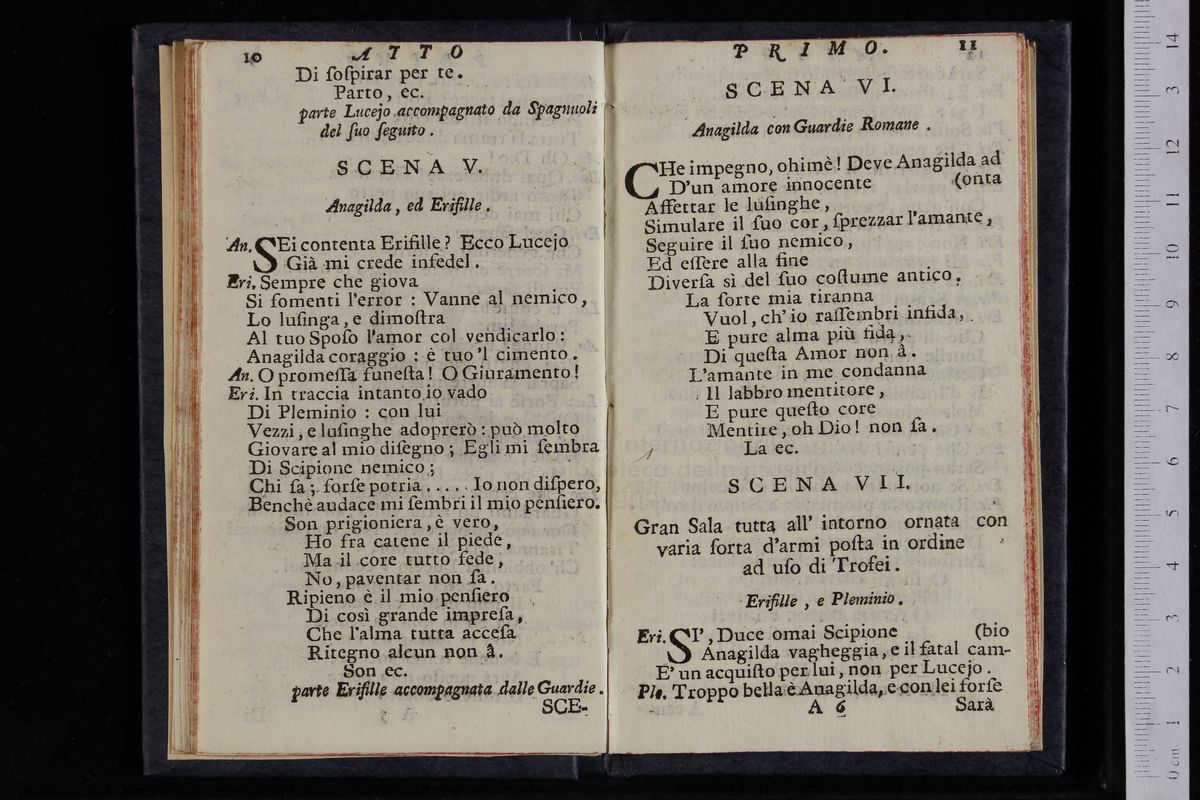 10 ATTO
Di ſoſpirar per te.
Parto, ec.
parte Lucejo accompagnato da Spagnuoli
del ſuo ſeguito.
SCENA V.
Anagilda, ed Erifille.
An. SEi contenta Erifille? Ecco Lucejo
Già mi crede infedel.
Eri. Sempre che giova
Si fomenti l'error: Vanne al nemico,
Lo luſinga, e dimoſtra
Al tuo Spoſo l'amor col vendicarlo:
Anagilda coraggio: è tuo 'l cimento.
An. O promeſſa funeſta! O Giuramento!
Eri. In traccia intanto io vado
Di Pleminio: con lui
Vezzi, e luſinghe adoprerò: può molto
Giovare al mio diſegno; Egli mi ſembra
Di Scipione nemico;
Chi ſa; forſe potria..... Io non diſpero,
Benchè audace mi ſembri il mio penſiero.
Son prigioniera, è vero,
Ho fra catene il piede,
Ma il core tutto fede,
No, paventar non ſa.
Ripieno è il mio penſiero
Di così grande impreſa,
Che l'alma tutta acceſa
Ritegno alcun non â.
Son ec.
parte Erifille accompagnata dalle Guardie.
SCE-
PRIMO. 11
SCENA VI.
Anagilda con Guardie Romane.
CHe impegno, ohimè! Deve Anagilda ad
D'un amore innocente (onta
Affettar le luſinghe,
Simulare il ſuo cor, ſprezzar l'amante,
Seguire il ſuo nemico,
Ed eſſere alla fine
Diverſa sì del ſuo coſtume antico.
La ſorte mia tiranna
Vuol, ch'io raſſembri infida,
E pure alma più fida,
Di queſta Amor non â.
L'amante in me condanna
Il labbro mentitore,
E pure queſto core
Mentire, oh Dio! non ſa.
La ec.
SCENA VII.
Gran Sala tutta all' intorno ornata con
varia ſorta d'armi poſta in ordine
ad uſo di Trofei.
Erifille, e Pleminio.
Eri. SI', Duce omai Scipione (bio
Anagilda vagheggia, e il fatal cam-
E' un acquiſto per lui, non per Lucejo.
Ple. Troppo bella è Anagilda, e con lei forſe
A 6 Sarà
0 cm 1 2 3 4 5 6 7 8 9 10 11 12 3 14